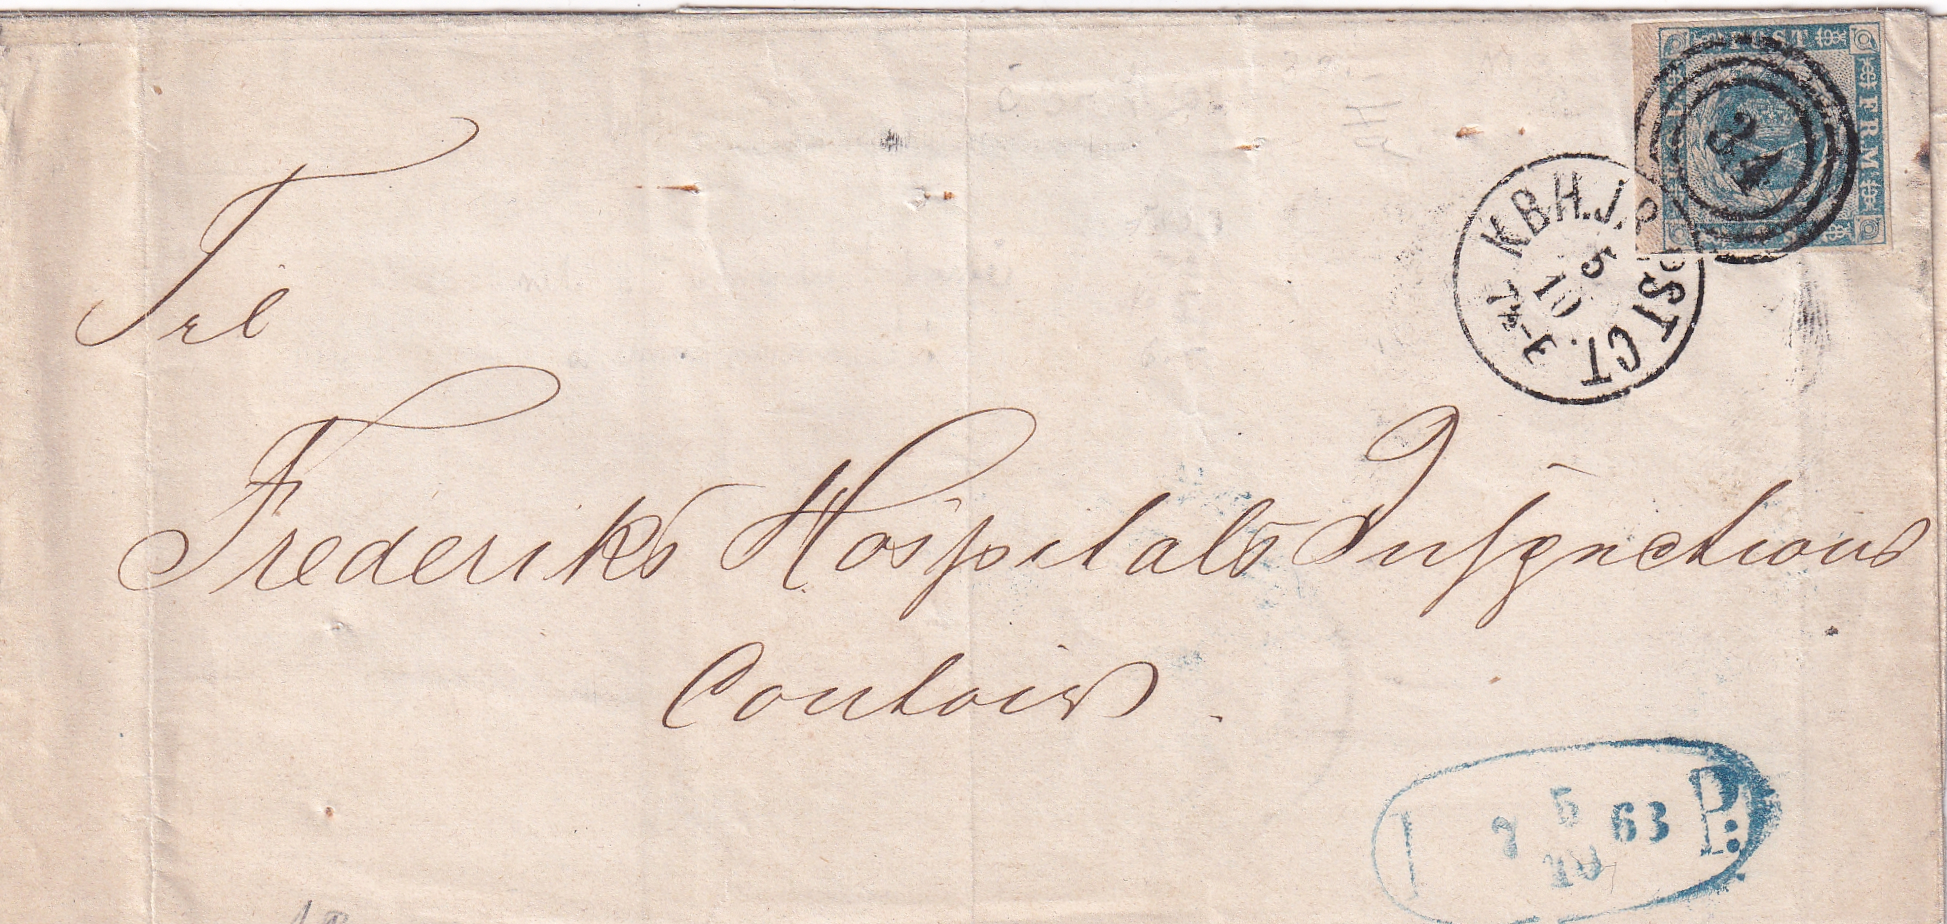 POST
FRM
34
KBH.J.B. POST CT.
5
10
Til
Frederiks Hospitals Inspections
Contoir
5
7 63 P:
10